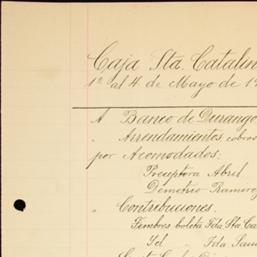 Caja Sta. Catalin
1º al 4 de Mayo de 1
A Banco de Durango
" Arrendamientos cobros
por Acomodados.
Preceptora Abril
Demetrio Ramirez
" Contribuciones.
Timbres boleta Fda Sta Ca
Yd " Fda Sau